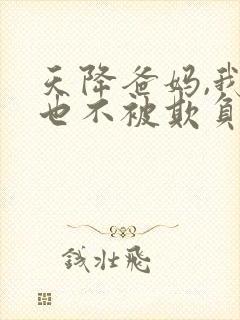 天降爸妈,我
也不被欺负
钱壮飞